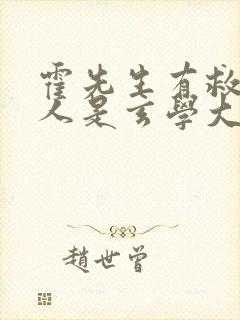 霍先生有救
人是玄學大
趙世曾